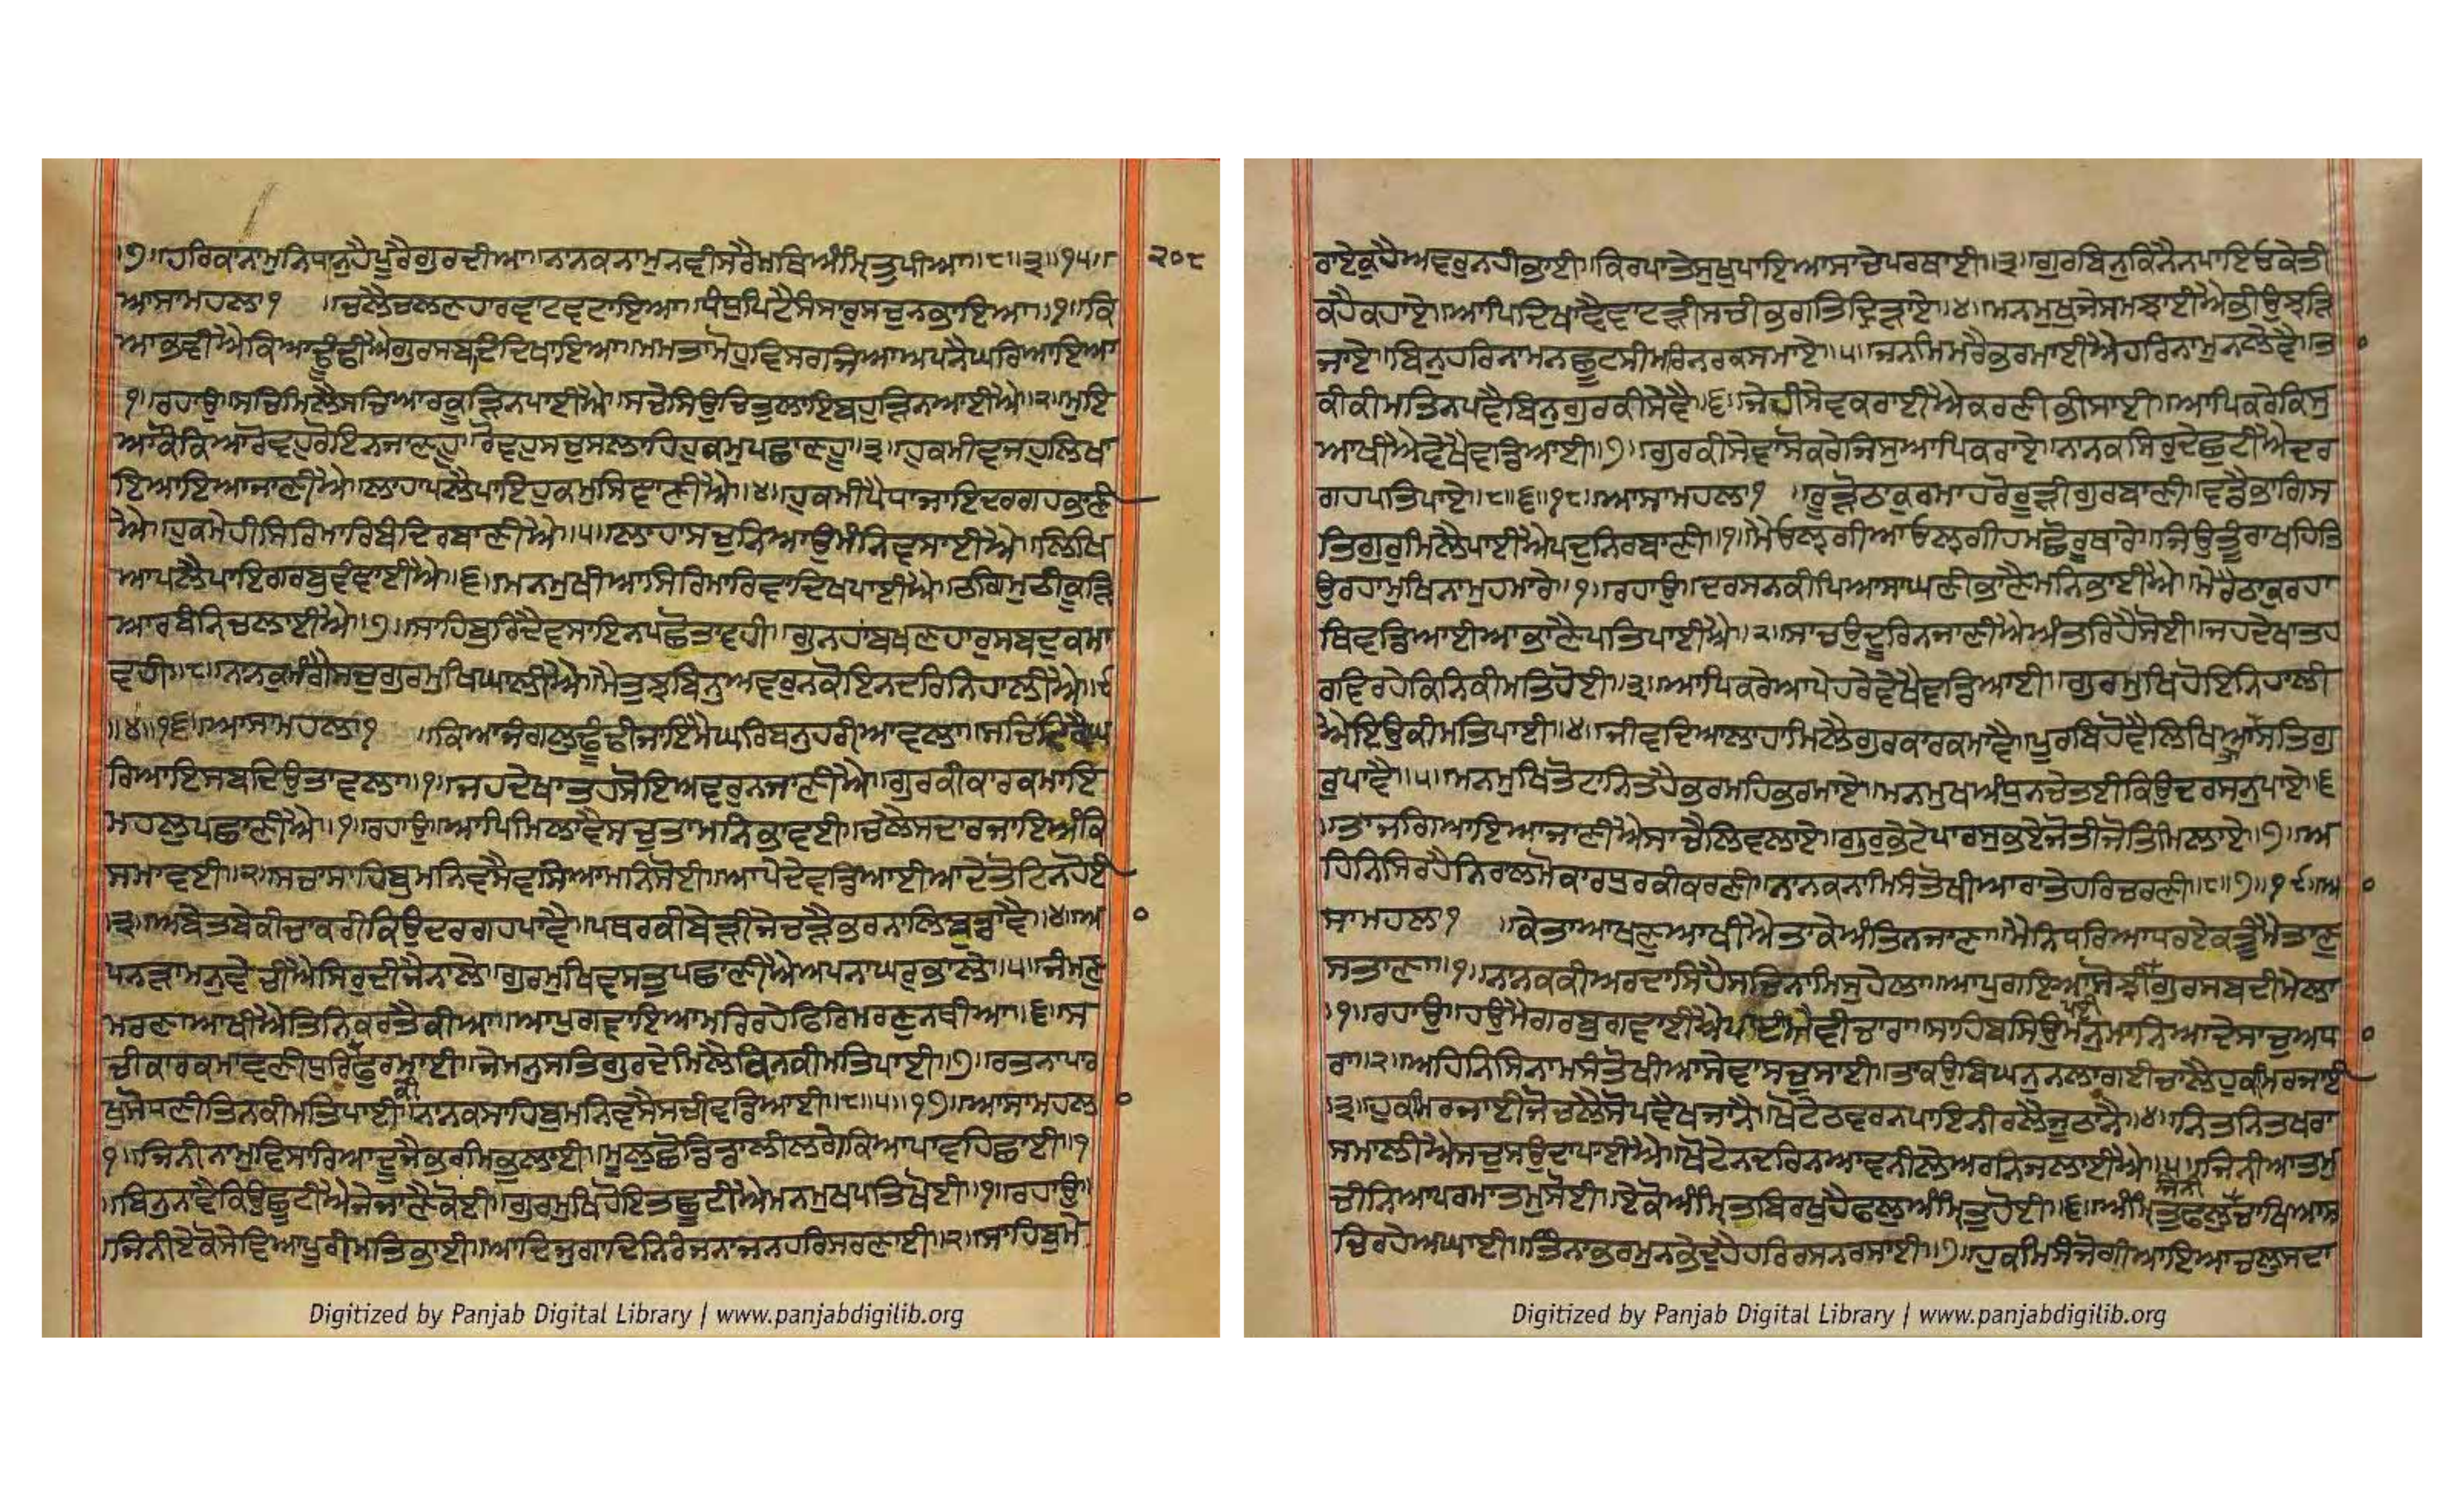 ।੭।।ਹਰਿਕਾਨਾਮੁਨਿਧਾਨੁਹੈਪੂਰੈਗੁਰਦੀਆ।।ਨਾਨਕਨਾਮੁਨਵੀਸਰੈਮਥਿਅੰਮ੍ਰਿਤੁਪੀਆ।।੮।।੩।।੧੫।। ੨੦੮
ਆਸਾਮਹਲਾ੧ ।।ਚਲੈਚਲਣਹਾਰਵਾਟਵਟਾਇਆ।।ਧੰਧੁਪਿਟੈਸੰਸਾਰੁਸਚੁਨਭਾਇਆ।।੧।।ਕਿ
ਆਭਵੀਐਕਿਆਢੂੰਢੀਐਗੁਰਸਬਦਿਦਿਖਾਇਆ।।ਮਮਤਾਮੋਹੁਵਿਸਰਜਿਆਅਪਨੈਘਰਿਆਇਆ
੧।।ਰਹਾਉ।।ਸਚਿਮਿਲੈਸਚਿਆਰਕੂੜਿਨਪਾਈਐ।।ਸਚੇਸਿਉਚਿਤੁਲਾਇਬਹੁੜਿਨਆਈਐ।।੨।।ਮੁਇ
ਆਕੌਕਿਆਰੋਵਹੁਰੋਇਨਜਾਣਹੂ।।ਰੋਵਹੁਸਚੁਸਲਾਹਿਹੁਕਮੁਪਛਾਣਹੂ।।੩।।ਹੁਕਮੀਵਜਹੁਲਿਖਾ
ਇਆਇਆਜਾਣੀਐ।।ਲਾਹਾਪਲੈਪਾਇਹੁਕਮੁਸਿਞਾਣੀਐ।।੪।।ਹੁਕਮੀਪੈਧਾਜਾਇਦਰਗਹਭਾਣੀ
ਐ।।ਹੁਕਮੇਹੀਸਿਰਿਮਾਰਬੰਦਿਰਬਾਣੀਐ।।੫।।ਲਾਹਾਸਚੁਨਿਆਉਮੰਨਿਵਸਾਈਐ।।ਲਿਖਿ
ਆਪਲੈਪਾਇਗਰਬੁਵੰਞਾਈਐ।।੬।।ਮਨਮੁਖੀਆਸਿਰਿਮਾਰਿਵਾਦਿਖਪਾਈਐ।।ਠਗਿਮੁਠੀਕੂੜਿ
ਆਰਬੰਨਿਚਲਾਈਐ।।੭।।ਸਾਹਿਬੁਰਿਦੈਵਸਾਇਨਪਛੋਤਾਵਹੀ।।ਗੁਨਹਾਂਬਖਸਣਹਾਰੁਸਬਦੁਕਮਾ
ਵਹੀ।।੮।।ਨਾਨਕੁਮੰਗੈਸਚੁਗੁਰਮੁਖਿਘਾਲੀਐ।।ਮੈਤੁਝਬਿਨੁਅਵਰੁਨਕੋਇਨਦਰਿਨਿਹਾਲੀਐ।।੯
।।੪।।੧੬।।ਆਸਾਮਹਲਾ੧ ।।ਕਿਆਜੰਗਲੁਢੂੰਢੀਜਾਇਮੈਘਰਿਬਨੁਹਰੀਆਵਲਾ।।ਸਚਿਟਿਕੈਘ
ਰਿਆਇਸਬਦਿਉਤਾਵਲਾ।।੧।।ਜਹਦੇਖਾਤਹਸੋਇਅਵਰੁਨਜਾਣੀਐ।।ਗੁਰਕੀਕਾਰਕਮਾਇ
ਮਹਲੁਪਛਾਣੀਐ।।੧।।ਰਹਾਉ।।ਆਪਿਮਿਲਾਵੈਸਚੁਤਾਮਨਿਭਾਵਈ।।ਚਲੈਸਦਾਰਜਾਇਅੰਕਿ
ਸਮਾਵਈ।।੨।।ਸਚਾਸਾਹਿਬੁਮਨਿਵਸੈਵਸਿਆਮਨਿਸੋਈ।।ਆਪੇਦੇਵਡਿਆਈਆਦੇਤੋਟਿਨਹੋਈ
।੩।।ਅਬੇਤਬੇਕੀਚਾਕਰੀਕਿਉਦਰਗਹਪਾਵੈ।।ਪਥਰਕੀਬੇੜੀਜੇਚੜੈਭਰਨਾਲਿਬੁਡਾਵੈ।।੪।।ਆ
ਪਨੜਾਮਨੁਵੇਚੀਐਸਿਰੁਦੀਜੈਨਾਲੇ।।ਗੁਰਮੁਖਿਵਸਤੁਪਛਾਣੀਐਅਪਨਾਘਰੁਭਾਲੇ।।੫।।ਜੰਮਣ
ਮਰਣਾਆਖੀਐਤਿਨਿਕਰਤੈਕੀਆ।।ਆਪੁਗਵਾਇਆਮਰਿਰਹੇਫਿਰਿਮਰਣੁਨਥੀਆ।।੬।।ਸ
ਚੀਕਾਰਕਮਾਵਣੀਧੁਰਿਫੁਰਮਾਈ।।ਜੇਮਨੁਸਤਿਗੁਰਦੇਮਿਲੈਕਿਨਕੀਮਤਿਪਾਈ।।੭।।ਰਤਨਾਪਾਰ
ਖੁਸੋਧਣੀਤਿਨਕੀਮਤਿਪਾਈ।।ਨਾਨਕਸਾਹਿਬੁਮਨਿਵਸੈਸਚੀਵਡਿਆਈ।।੮।।੫।।੧੭।।ਆਸਾਮਹਲਾ
੧।।ਜਿਨੀਨਾਮੁਵਿਸਾਰਿਆਦੂਜੈਭਰਮਿਭੁਲਾਈ।।ਮੂਲੁਛੋਡਿਡਾਲੀਲਗੇਕਿਆਪਾਵਹਿਛਾਈ।।੧
।।ਬਿਨੁਨਾਵੈਕਿਉਛੂਟੀਐਜੇਜਾਣੈਕੋਈ।।ਗੁਰਮੁਖਿਹੋਇਤਛੂਟੀਐਮਨਮੁਖਪਤਿਖੋਈ।।੧।।ਰਹਾਉ
।।ਜਿਨੀਏਕੋਸੇਵਿਆਪੂਰੀਮਤਿਭਾਈ।।ਆਦਿਜੁਗਾਦਿਨਿਰੰਜਨਾਜਨਹਰਿਸਰਣਾਈ।।੨।।ਸਾਹਿਬੁਮੇ
Digitized by Panjab Digital Library | www.panjabdigilib.org
ਰਾਏਕੁਹੈਅਵਰੁਨਹੀਭਾਈ।।ਕਿਰਪਾਤੇਸੁਖੁਪਾਇਆਸਾਚੇਪਰਥਾਈ।।੩।।ਗੁਰਬਿਨੁਕਿਨੈਨਪਾਇਓਕੇਤੀ
ਕਹੈਕਹਾਏ।।ਆਪਿਦਿਖਾਵੈਵਾਟੜੀਸਚੀਭਗਤਿਦ੍ਰਿੜਾਏ।।੪।।ਮਨਮੁਖੁਜੇਸਮਝਾਈਐਭੀਉਝੜਿ
ਜਾਏ।।ਬਿਨੁਹਰਿਨਾਮਨਛੂਟਸੀਮਰਿਨਰਕਸਮਾਏ।।੫।।ਜਨਮਿਮਰੈਭਰਮਾਈਐਹਰਿਨਾਮੁਨਲੇਵੈ।।ਤ
ਕੀਕੀਮਤਿਨਪਵੈਬਿਨੁਗੁਰਕੀਸੇਵੈ।।੬।।ਜੇਹੀਸੇਵਕਰਾਈਐਕਰਣੀਭੀਸਾਈ।।ਆਪਿਕਰੇਕਿਸੁ
ਆਖੀਐਵੇਖੈਵਡਿਆਈ।।੭।।ਗੁਰਕੀਸੇਵਾਸੋਕਰੇਜਿਸੁਆਪਿਕਰਾਏ।।ਨਾਨਕਸਿਰੁਦੇਛੂਟੀਐਦਰ
ਗਹਪਤਿਪਾਏ।।੮।।੬।।੧੮।।ਆਸਾਮਹਲਾ੧ ।।ਰੂੜੋਠਾਕੁਰਮਾਹਰੋਰੂੜੀਗੁਰਬਾਣੀ।।ਵਡੈਭਾਗਿਸ
ਤਿਗੁਰੁਮਿਲੈਪਾਈਐਪਦੁਨਿਰਬਾਣੀ।।੧।।ਮੈਓਲ੍ਹਗੀਆਓਲ੍ਹਗੀਹਮਛੋਰੂਥਾਰੇ।।ਜਿਉਤੂੰਰਾਖਹਿਤਿ
ਉਰਹਾਮੁਖਿਨਾਮੁਹਮਾਰੇ।।੧।।ਰਹਾਉ।।ਦਰਸਨਕੀਪਿਆਸਾਘਣੀਭਾਣੈਮਨਿਭਾਈਐ।।ਮੇਰੇਠਾਕੁਰਹਾ
ਥਿਵਡਿਆਈਆਭਾਣੈਪਤਿਪਾਈਐ।।੨।।ਸਾਚਉਦੂਰਿਨਜਾਣੀਐਅੰਤਰਿਹੈਸੋਈ।।ਜਹਦੇਖਾਤਹ
ਰਵਿਰਹੇਕਿਨਿਕੀਮਤਿਹੋਈ।।੩।।ਆਪਿਕਰੇਆਪੇਹਰੇਵੇਖੈਵਡਿਆਈ।।ਗੁਰਮੁਖਿਹੋਇਨਿਹਾਲੀ
ਐਇਉਕੀਮਤਿਪਾਈ।।੪।।ਜੀਵਦਿਆਲਾਹਾਮਿਲੈਗੁਰਕਾਰਕਮਾਵੈ।।ਪੂਰਬਿਹੋਵੈਲਿਖਿਆਸਤਿਗੁ
ਰੁਪਾਵੈ।।੫।।ਮਨਮੁਖਿਤੋਟਾਨਿਤਹੈਭਰਮਹਿਭਰਮਾਏ।।ਮਨਮੁਖਅੰਧੁਨਚੇਤਈਕਿਉਦਰਸਨੁਪਾਏ।।੬
।।ਤਾਜਗਿਆਇਆਜਾਣੀਐਸਾਚੈਲਿਵਲਾਏ।।ਗੁਰਭੇਟੇਪਾਰਸੁਭਏਜੋਤੀਜੋਤਿਮਿਲਾਏ।।੭।।ਅ
ਹਿਨਿਸਿਰਹੈਨਿਰਾਲਮੋਕਾਰਧੁਰਕੀਕਰਣੀ।।ਨਾਨਕਨਾਮਿਸੰਤੋਖੀਆਰਾਤੇਹਰਿਚਰਣੀ।।੮।।੭।।੧੯।।ਆ
ਸਾਮਹਲਾ੧ ।।ਕੇਤਾਆਖਣੁਆਖੀਐਤਾਕੇਅੰਤਿਨਜਾਣਾ।।ਮੈਨਿਧਰਿਆਧਰਏਕਤੂੰਮੈਤਾਣੁ
ਸਤਾਣਾ।।੧।।ਨਾਨਕਕੀਅਰਦਾਸਿਹੈਸਚਿਨਾਮਿਸੁਹੇਲਾ।।ਆਪੁਗਇਆਸੋਝੀਗੁਰਸਬਦੀਮੇਲਾ
।੧।।ਰਹਾਉ।।ਹਉਮੈਗਰਬੁਗਵਾਈਐਪਾਈਐਵੀਚਾਰਾ।।ਸਾਹਿਬਸਿਉਮਨੁਮਾਨਿਆਦੇਸਾਚੁਅਧਾ
ਰਾ।।੨।।ਅਹਿਨਿਸਿਨਾਮਸੰਤੋਖੀਆਸੇਵਾਸਚੁਸਾਈ।।ਤਾਕਉਬਿਘਨੁਨਲਾਗਈਚਾਲੈਹੁਕਮਿਰਜਾਈ
।੩।।ਹੁਕਮਿਰਜਾਈਜੋਚਲੈਸੋਪਵੈਖਜਾਨੈ।।ਖੋਟੇਠਵਰਨਪਾਇਨੀਰਲੈਜੂਠਾਨੈ।।੪।।ਨਿਤਨਿਤਖਰਾ
ਸਮਾਲੀਐਸਚੁਸਉਦਾਪਾਈਐ।।ਖੋਟੇਨਦਰਿਨਆਵਨੀਲੇਅਗਨਿਜਲਾਈਐ।।੫।।ਜਿਨੀਆਤਮੁ
ਚੀਨਿਆਪਰਮਾਤਮੁਸੋਈ।।ਏਕੋਅੰਮ੍ਰਿਤਬਿਰਖੁਹੈਫਲੁਅੰਮ੍ਰਿਤੁਹੋਈ।।੬।।ਅੰਮ੍ਰਿਤੁਫਲੁਜਿਨੀਚਾਖਿਆਸ
ਚਿਰਹੇਅਘਾਈ।।ਤਿੰਨਾਭਰਮੁਨਭੇਦੁਹੈਹਰਿਰਸਨਰਸਾਈ।।੭।।ਹੁਕਮਿਸੰਜੋਗੀਆਇਆਚਲੁਸਦਾ
Digitized by Panjab Digital Library | www.panjabdigilib.org